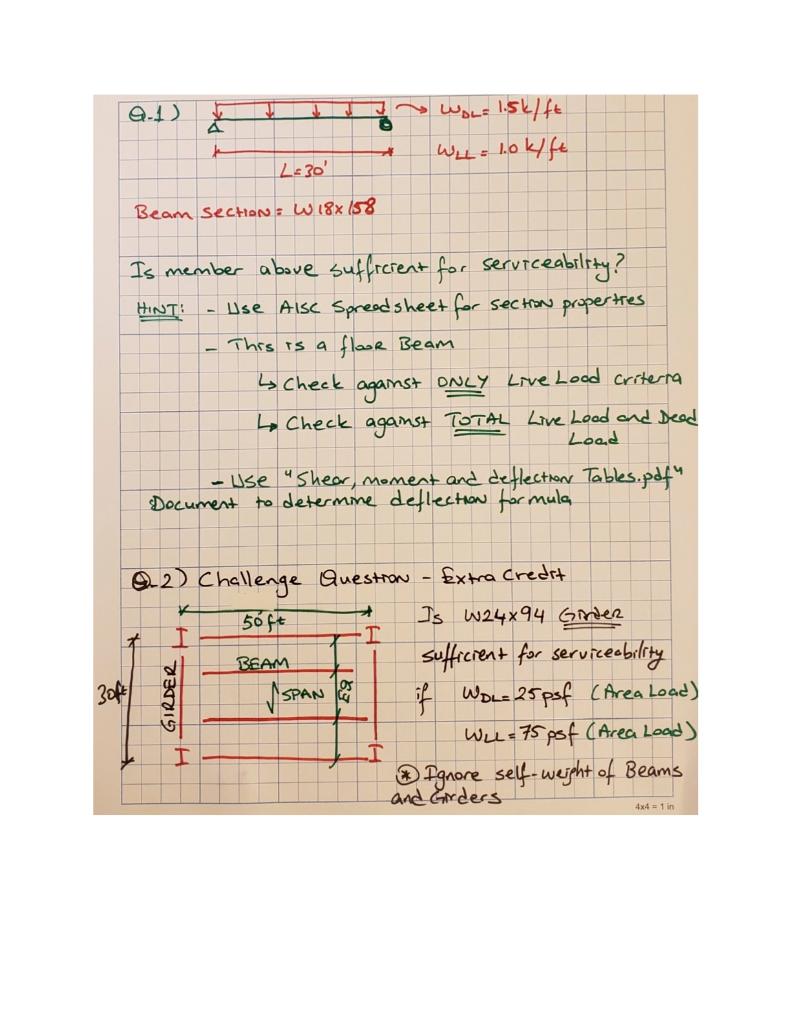 Q.1) WDL = 1.5k/ft
WLL = 1.0 k/ft
L=30'
Beam Section = W18x158
Is member above sufficient for serviceability?
HINT: - Use AISC Spreadsheet for section properties
- This is a floor Beam
↳ Check against ONLY Live Load criteria
↳ Check against TOTAL Live Load and Dead
Load
- Use "Shear, moment and deflection Tables.pdf"
Document to determine deflection formula
Q.2) Challenge Question - Extra Credit
50ft
30ft
GIRDER
BEAM
SPAN
EQ
Is W24x94 Girder
sufficient for serviceability
if WDL = 25psf (Area Load)
WLL = 75 psf (Area Load)
* Ignore self-weight of Beams
and Girders
4x4 = 1 in